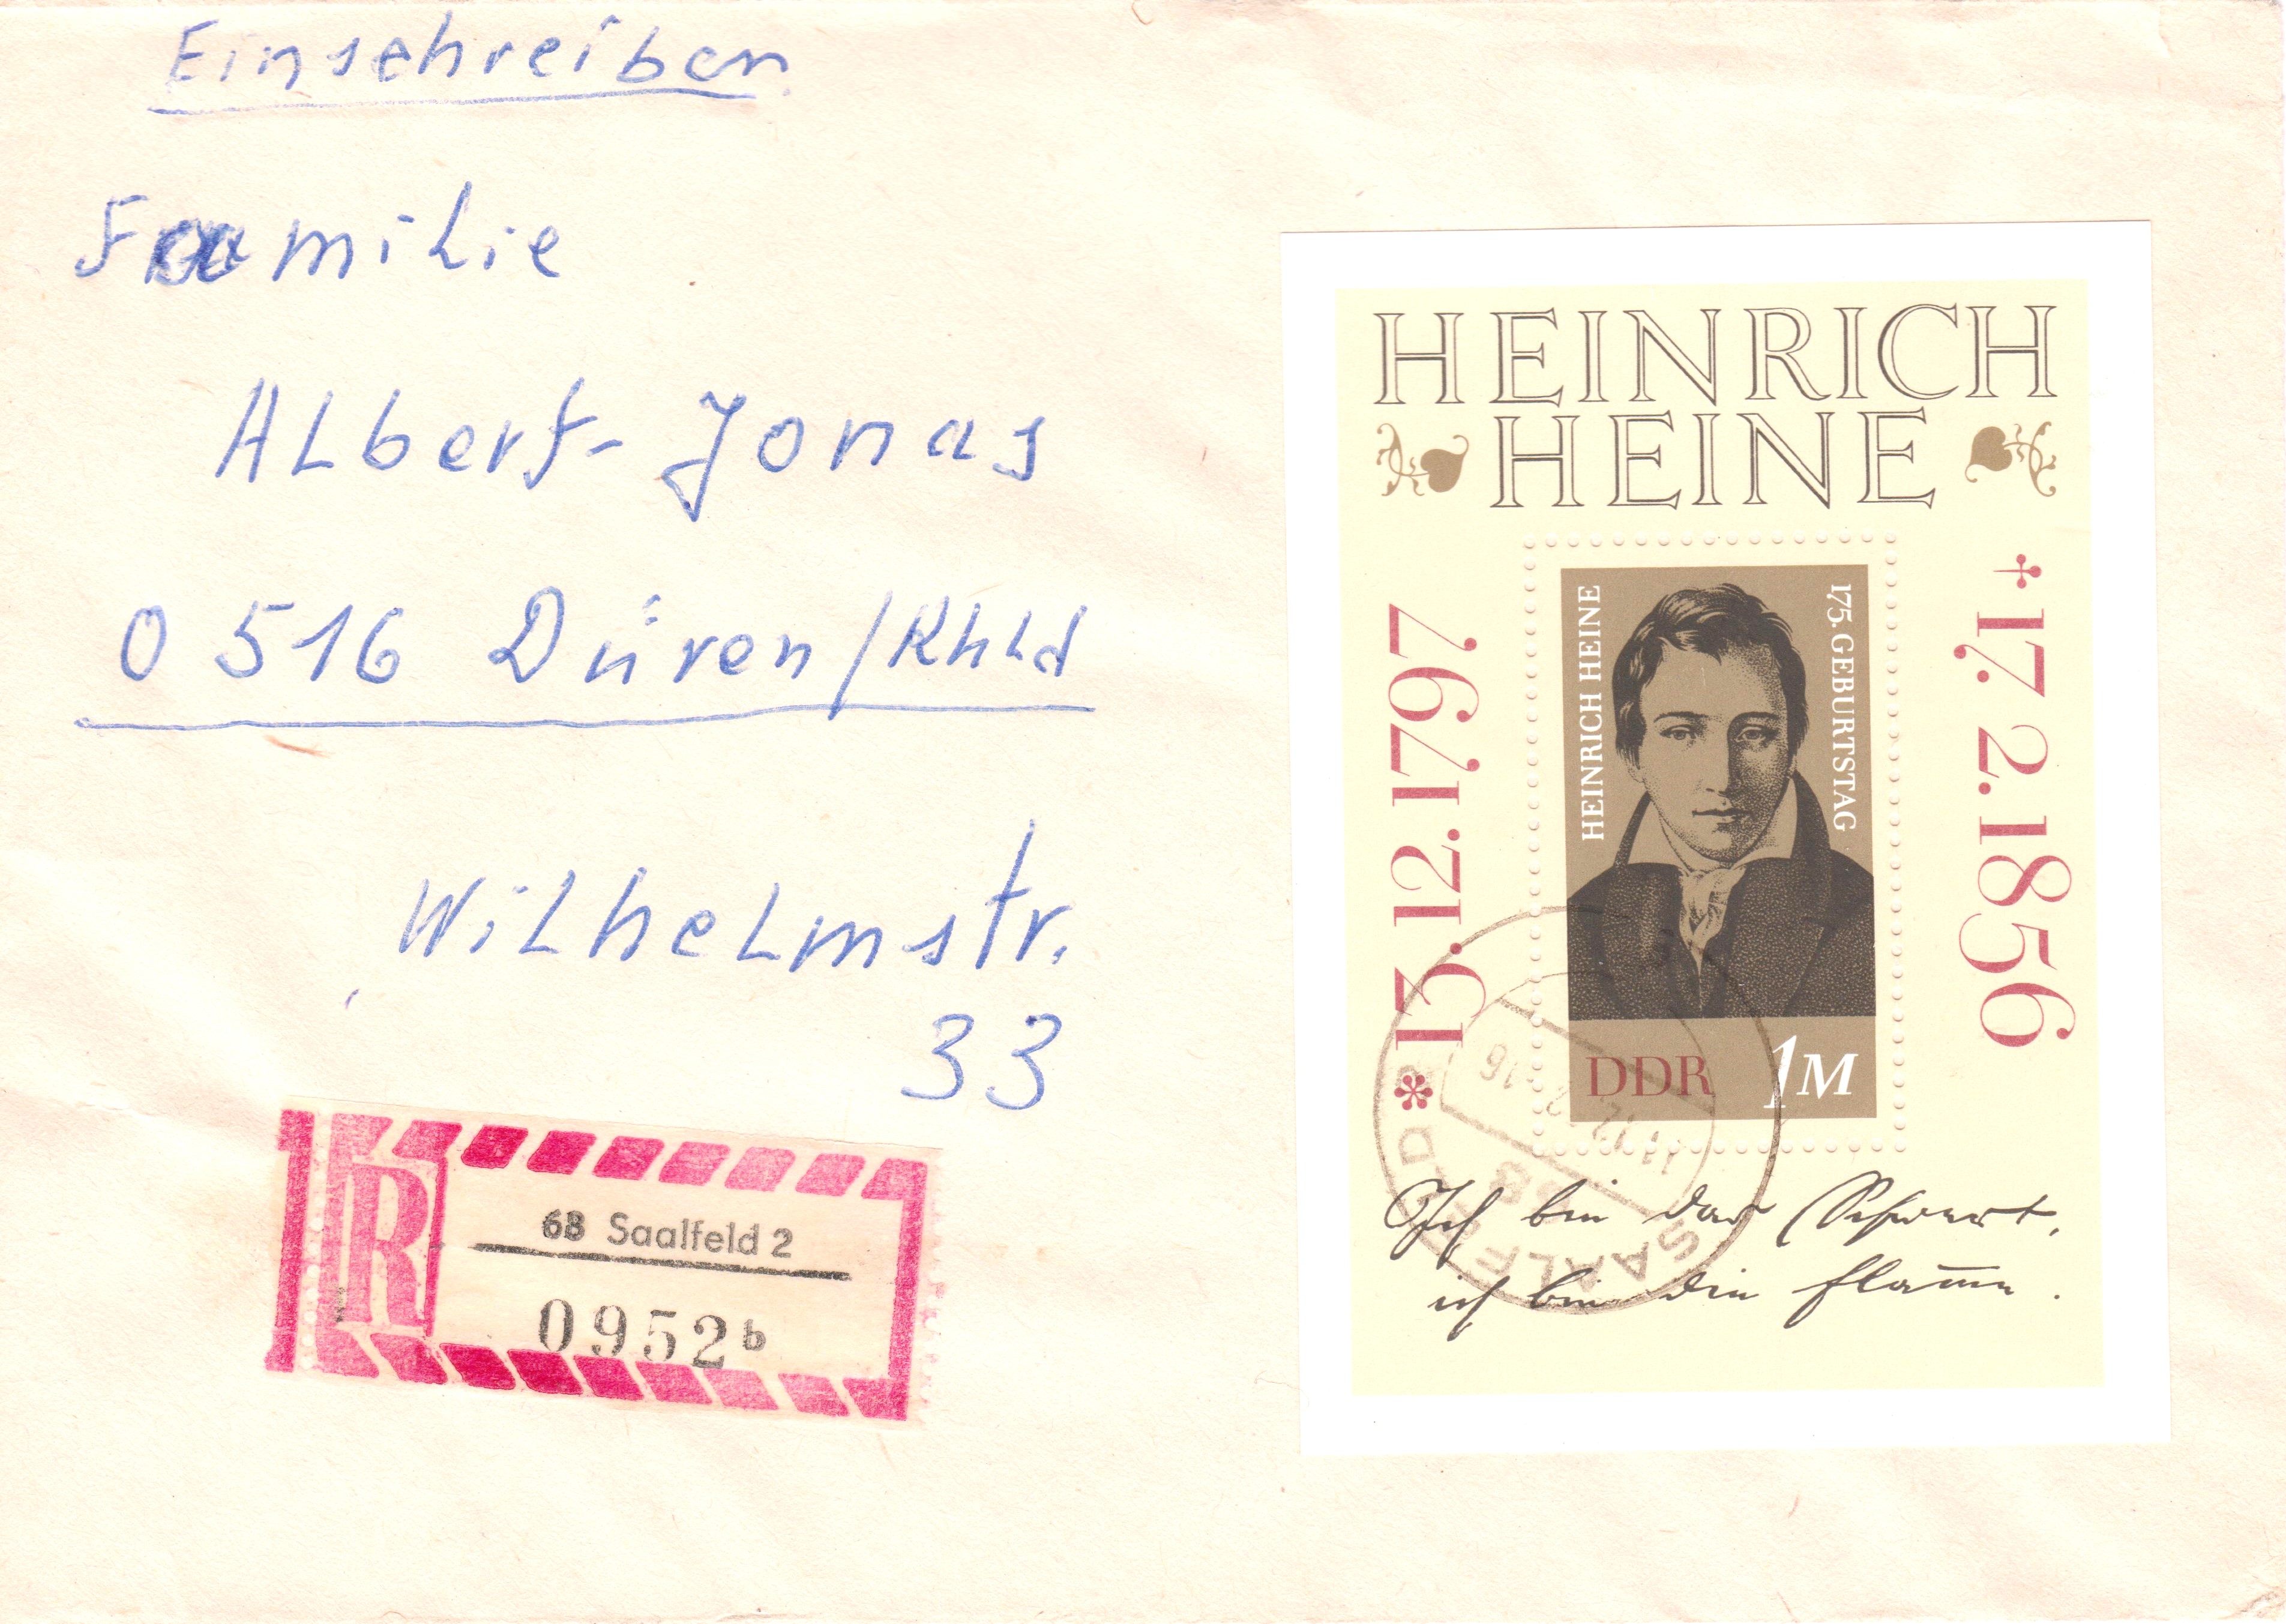 Einschreiben
Familie
Albert-Jonas
0 516 Düren/Rhld
Wilhelmstr.
33
R
68 Saalfeld 2
0952 b
HEINRICH
HEINE
* 13.12.1797
† 17. 2. 1856
HEINRICH HEINE
175. GEBURTSTAG
DDR 1M
Ich bin das Schwert,
ich bin die Flamme.
SAALFELD
68